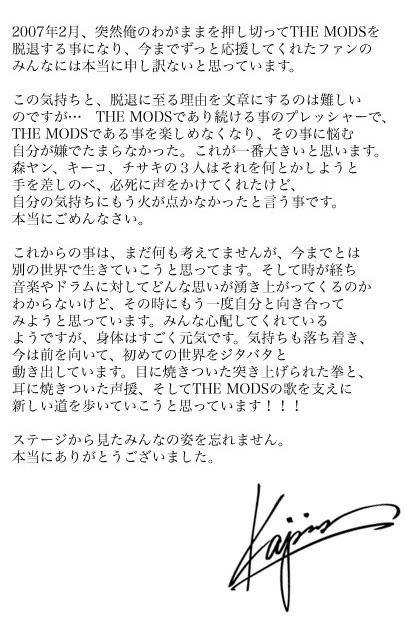 2007年2月、突然俺のわがままを押し切ってTHE MODSを
脱退する事になり、今までずっと応援してくれたファンの
みんなには本当に申し訳ないと思っています。
この気持ちと、脱退に至る理由を文章にするのは難しい
のですが… THE MODSであり続ける事のプレッシャーで、
THE MODSである事を楽しめなくなり、その事に悩む
自分が嫌でたまらなかった。これが一番大きいと思います。
森ヤン、キーコ、チサキの３人はそれを何とかしようと
手を差しのべ、必死に声をかけてくれたけど、
自分の気持ちにもう火が点かなかったと言う事です。
本当にごめんなさい。
これからの事は、まだ何も考えてませんが、今までとは
別の世界で生きていこうと思ってます。そして時が経ち
音楽やドラムに対してどんな思いが湧き上がってくるのか
わからないけど、その時にもう一度自分と向き合って
みようと思っています。みんな心配してくれている
ようですが、身体はすごく元気です。気持ちも落ち着き、
今は前を向いて、初めての世界をジタバタと
動き出しています。目に焼きついた突き上げられた拳と、
耳に焼きついた声援、そしてTHE MODSの歌を支えに
新しい道を歩いていこうと思っています！！！
ステージから見たみんなの姿を忘れません。
本当にありがとうございました。